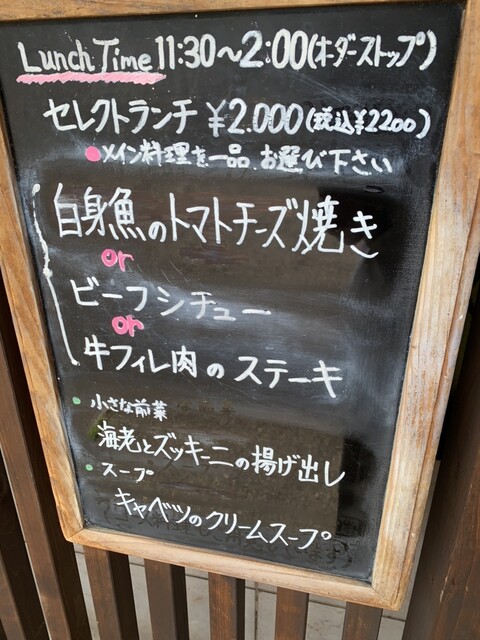 Lunch Time 11:30〜2:00(オーダーストップ)
セレクトランチ ¥2.000(税込¥2200)
●メイン料理を一品 お選び下さい
白身魚のトマトチーズ焼き
or
ビーフシチュー
or
牛フィレ肉のステーキ
●小さな前菜
海老とズッキーニの揚げ出し
●スープ
キャベツのクリームスープ